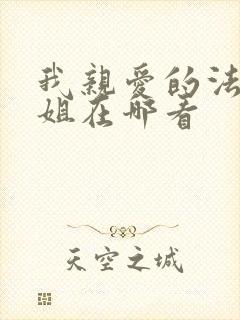 我親愛的法
姐在哪看
天空之城